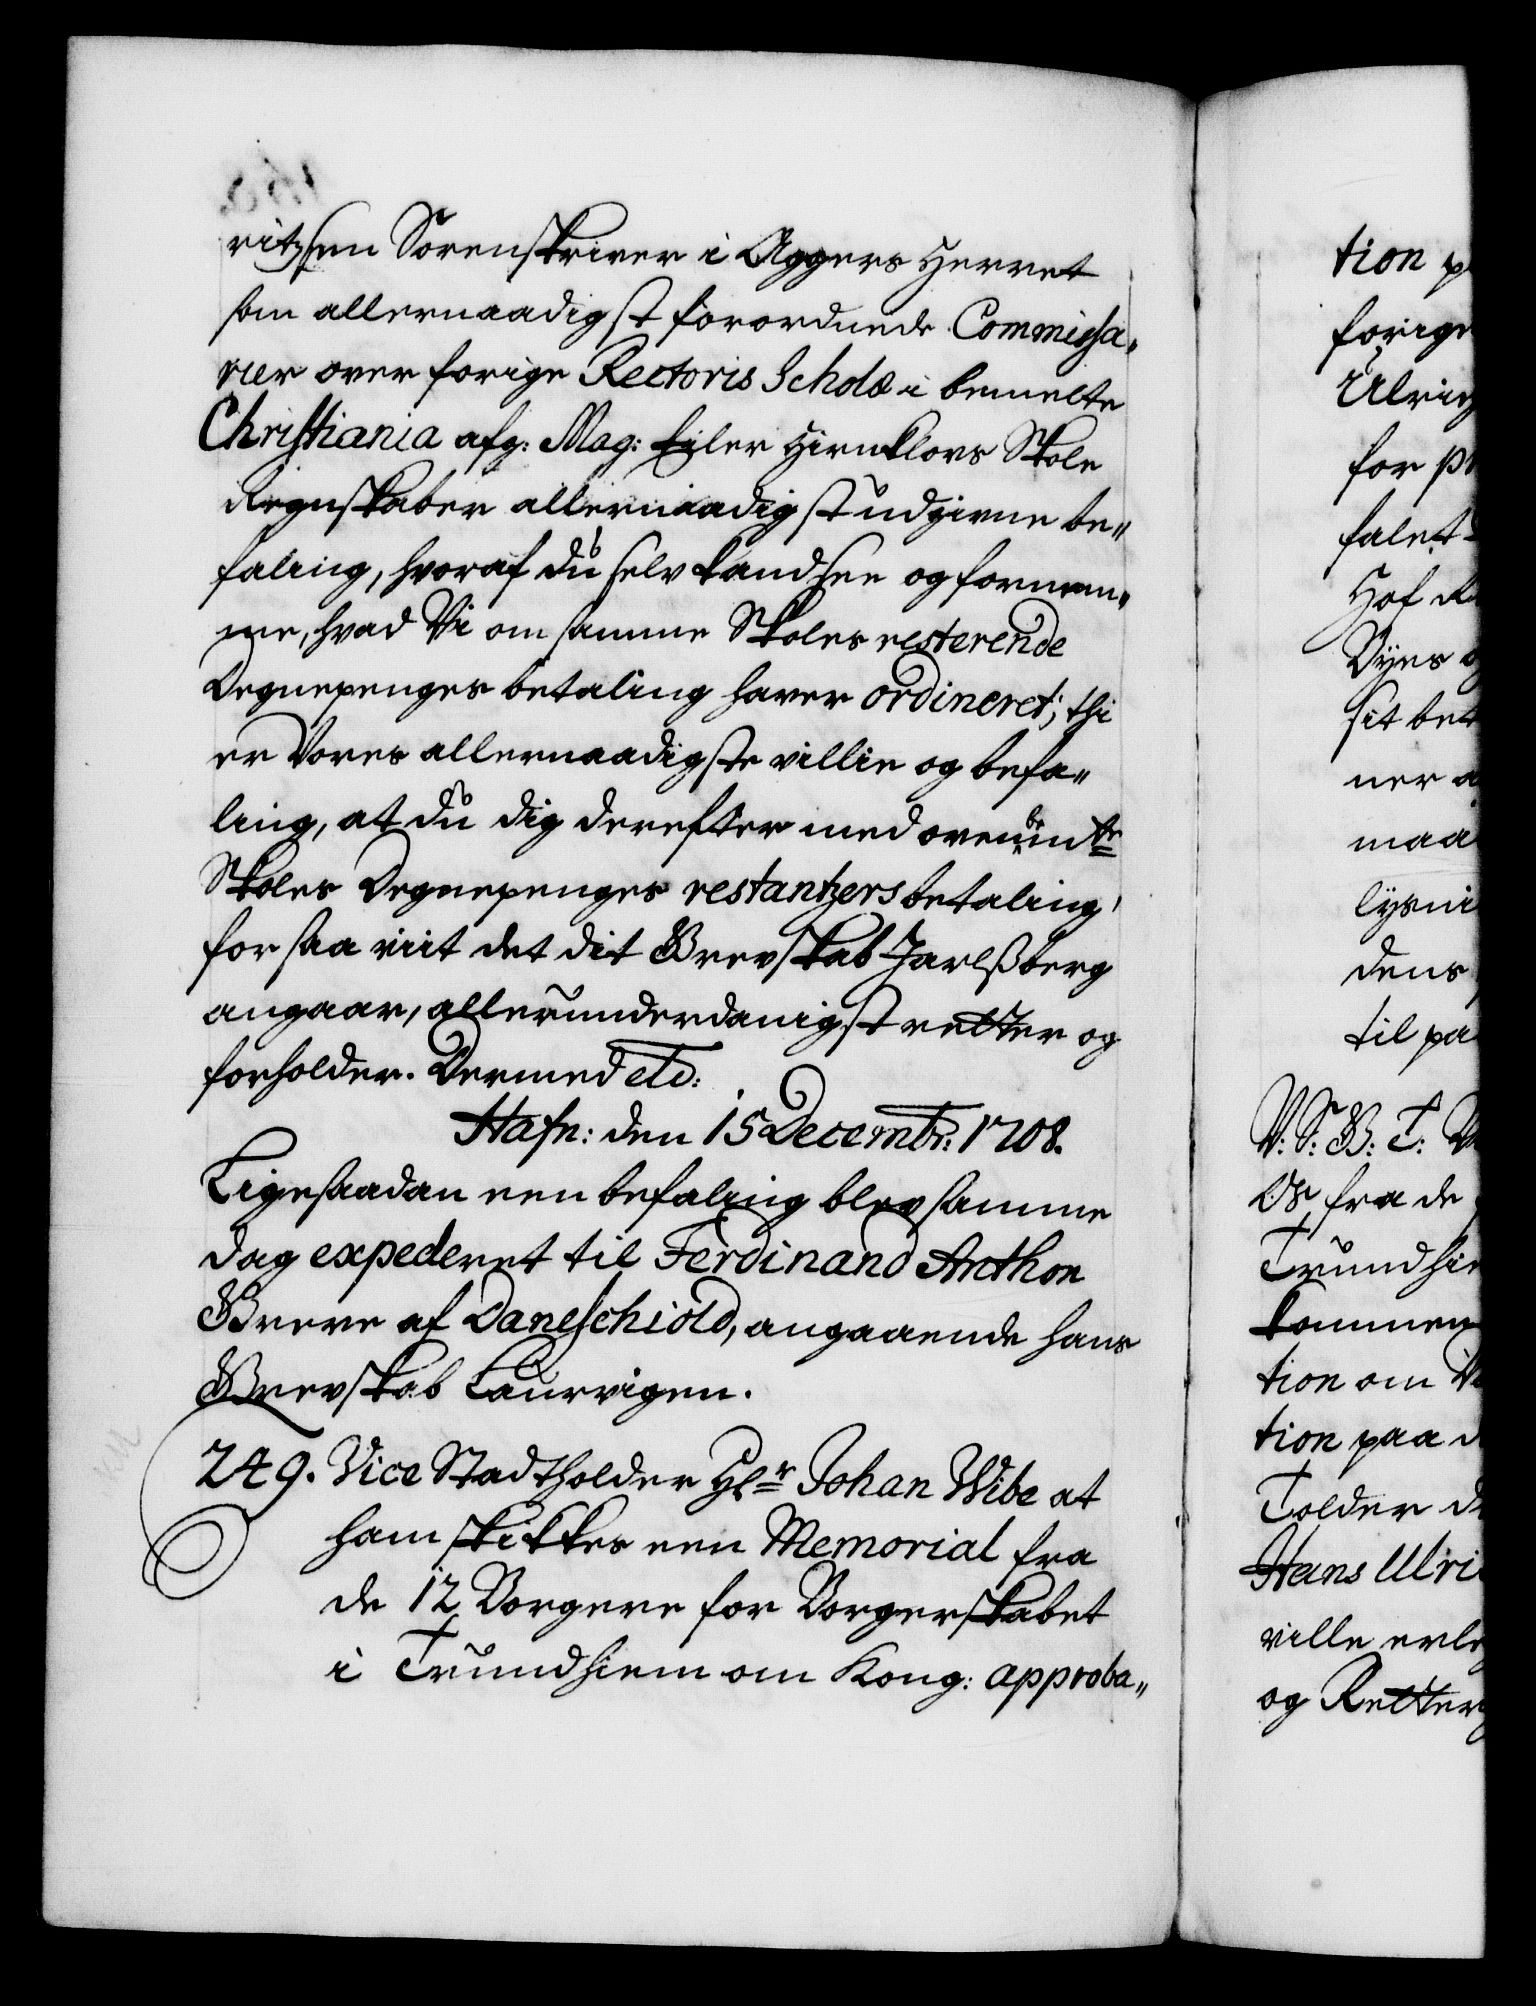 ritzsen Sorenskriver i Aggers Herret
som allernaadigst forordnede Commissa„
rier over forige Rectoris Scholæ i bemelte
Christiania afg: Mag: Eiler Hirnklovs Skole
Regnskaber allernaadigst udgivne be„
faling, hvoraf du self kand see og fornem„
me, hvad Vi om samme Skoles resterende
Degnepenges betaling haver ordineret; thi
er Vores allernaadigste villie og befa„
ling, at du dig derefter med ovenbemte
Skoles Degnepenges restantzers betaling
for saa viit det dit Grevskab Jarlßberg
angaar, allerunderdanigst retter og
forholder. Dermed etc:
Hafn: den 15 Decembr: 1708.
Ligesaadan een befaling blev samme
dag expederet til Ferdinand Anthon
Greve af Daneschiold, angaaende hans
Grevskab Laurvigen.
249. Vice Stadtholder Hr Johan Wibe at
ham skikkes een Memorial fra
de 12 Borgere for Borgerskabet
i Trundhiem om Kong: approba„
tion
forige
Ulrich
for
falet
Hof
Dÿes
sit bet
ner
maa
lysni
dens
til pa
V: S: G: T: V
Os fra de
Trundhie
kommen
tion om
tion paa d
Tolder d
Hans Ulri
ville erle
og Retter